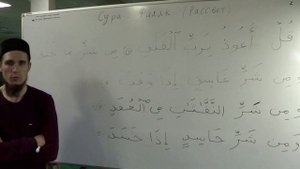 Сура Фаляк (Рассвет)
قُلْ أَعُوذُ بِرَبِّ ٱلْفَلَقِ مِن شَرِّ مَا خَلَقَ
وَمِن شَرِّ غَاسِقٍ إِذَا وَقَبَ
وَمِن شَرِّ النَّفَّٰثَٰتِ فِي الْعُقَدِ
وَمِن شَرِّ حَاسِدٍ إِذَا حَسَدَ